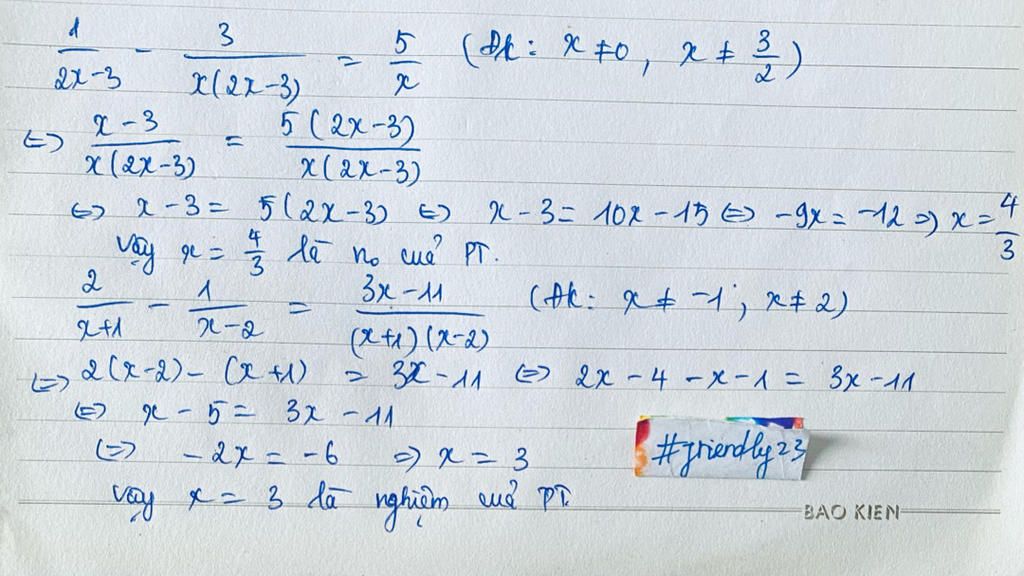 1/(2x-3) - 3/(x(2x-3)) = 5/x (Đk: x ≠ 0, x ≠ 3/2)
⇔ (x-3)/(x(2x-3)) = 5(2x-3)/(x(2x-3))
⇔ x - 3 = 5(2x-3) ⇔ x - 3 = 10x - 15 ⇔ -9x = -12 ⇒ x = 4/3
Vậy x = 4/3 là no của PT.
2/(x+1) - 1/(x-2) = (3x-11)/((x+1)(x-2)) (Đk: x ≠ -1; x ≠ 2)
⇔ 2(x-2) - (x+1) = 3x - 11 ⇔ 2x - 4 - x - 1 = 3x - 11
⇔ x - 5 = 3x - 11
⇔ -2x = -6 ⇒ x = 3
Vậy x = 3 là nghiệm của PT.
#friendly23
BAO KIEN